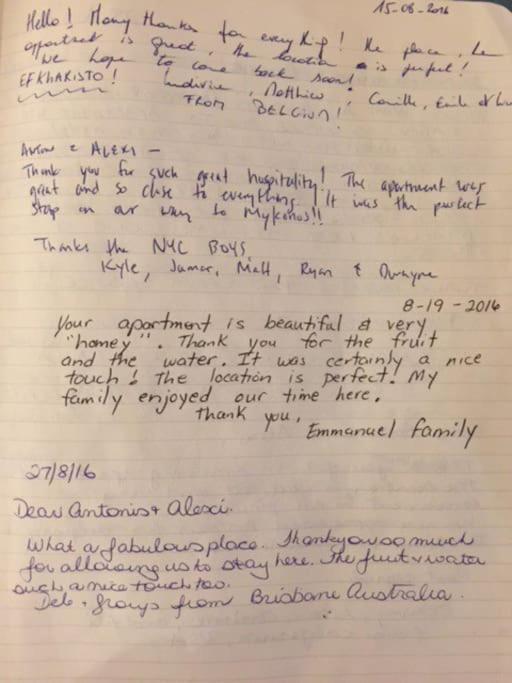 15-08-2016
Hello! Many thanks for everything! The place, the
apartment is great, the location is perfect!
We hope to come back soon!
EFKHARISTO! Ludivine, Matthieu, Camille, Emile
FROM BELGIUM!
& ALEXI -
Thank you for such great hospitality! The apartment was
great and so close to everything! It was the perfect
stop on our way to Mykonos!!
Thanks the NYC BOYS,
Kyle, Jamar, Matt, Ryan & Dwayne
8-19-2016
Your apartment is beautiful & very
"homey". Thank you for the fruit
and the water. It was certainly a nice
touch! The location is perfect! My
family enjoyed our time here.
Thank you,
Emmanuel family
27/8/16
Dear Antonis + Alexi.
What a fabulous place. Thankyou so much
for allowing us to stay here. The fruit + water
such a nice touch too.
Deb + from Brisbane Australia.